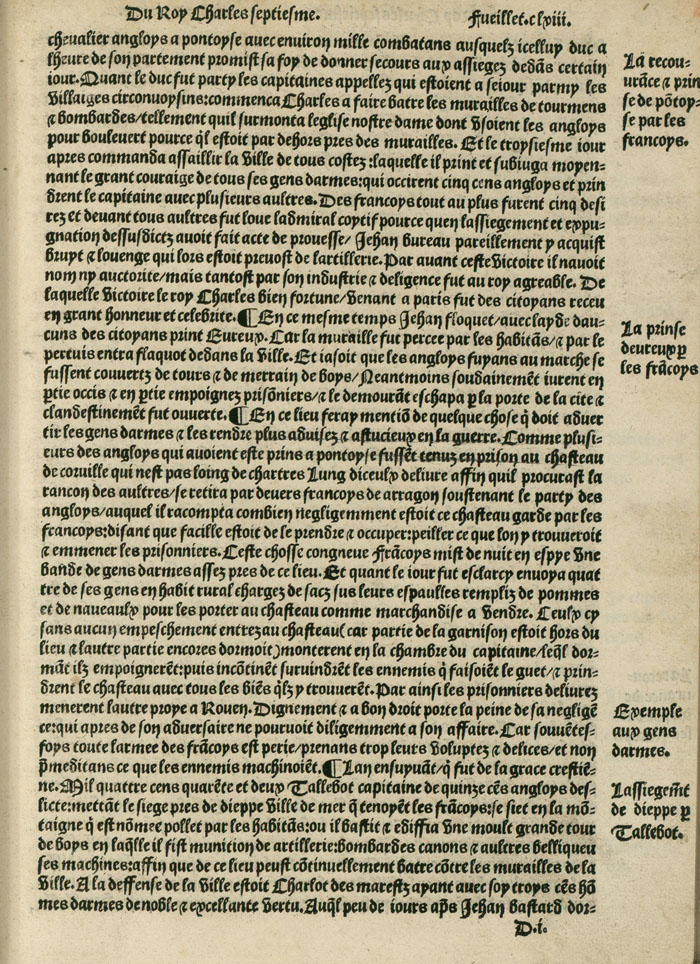 Du Roy Charles septiesme.
Fueillet.clxiii.
chevalier angloys a pontoyse avec environ mille combatans ausquelz icelluy duc a
lheure de son partement promist sa foy de donner secours aux assiegez dedãs certain
iour. Quant le duc fut party les capitaines appellez qui estoient a seiour parmy les
villaiges circonvoysins: commenca Charles a faire batre les murailles de tourmens
⁊ bombardes/tellement quil surmonta leglise nostre dame dont vsoient les angloys
pour boulevert pource ql̃ estoit par dehors pres des murailles. Et le troysiesme iour
apres commanda assaillir la ville de tous costez: laquelle il print et subiuga moyen-
nant le grant couraige de tous ses gens darmes: qui occirent cinq cens angloys et prin
drent le capitaine avec plusieurs aultres. Des francoys tout au plus furent cinq desi
rez et devant tous aultres fut loue ladmiral coytif pource quen lassiegement et expu-
gnation dessusdictz avoit fait acte de prouesse/ Jehan bureau pareillement y acquist
bruyt ⁊ louenge qui lors estoit prevost de lartillerie. Par avant ceste victoire il navoit
nom ny auctorite/mais tantost par son industrie ⁊ deligence fut au roy agreable. De
laquelle victoire le roy Charles bien fortune/venant a paris fut des citoyans receu
en grant honneur et celebrite. ¶ En ce mesme temps Jehan floquet/avec layde dau-
cuns des citoyans print Eureux. Car la muraille fut percee par les habitãs/⁊ par le
pertuis entra flaquot dedans la ville. Et iasoit que les angloys fuyans au marche se
fussent couvertz de tours ⁊ de merrain de boys/Neantmoins soudainemẽt furent en
ꝑtie occis ⁊ en ꝑtie empoignez prisõniers/⁊ le demourãt eschapa ꝑ la porte de la cite ⁊
clandestinemẽt fut ouverte. ¶ En ce lieu feray mentiõ de quelque chose q̃ doit adver
tir les gens darmes ⁊ les rendre plus advisez ⁊ astucieux en la guerre. Comme plusi-
eurs des angloys qui avoient este prins a pontoyse fussẽt tenuz en prison au chasteau
de corville qui nest pas loing de chartres Lung diceulx delivre affin quil procurast la
rancon des aultres/se retira par devers francoys de arragon soustenant le party des
angloys/auquel il racompta combien negligemment estoit ce chasteau garde par les
francoys: disant que facille estoit de le prendre ⁊ occuper: peiller ce que lon y trouveroit
⁊ emmener les prisonniers. Ceste chosse congneue Frãcoys mist de nuit en espye vne
bande de gens darmes assez pres de ce lieu. Et quant le iour fut esclarcy envoya quat
tre de ses gens en habit rural chargez de sacz sus leurs espaulles rempliz de pommes
et de naveaulx pour les porter au chasteau comme marchandise a vendre. Ceulx cy
sans aucun empeschement entrez au chasteau( car partie de la garnison estoit hors du
lieu ⁊ lautre partie encores dormoit) monterent en la chambre du capitaine/leq̃l dor-
mãt ilz empoignerẽt: puis incõtinẽt survindrẽt les ennemis q̃ faisoiẽt le guet/⁊ prin-
drent le chasteau avec tous les biẽs q̃lz y trouverẽt. Par ainsi les prisonniers delivrez
menerent lautre proye a Rouen. Dignement ⁊ a bon droit porte la peine de sa negligẽ
ce: qui apres de son adversaire ne pourvoit diligemment a son affaire. Car souvẽtes-
foys toute larmee des frãcoys est perie/prenans trop leurs voluptez ⁊ delices/et non
p̃meditans ce que les ennemis machinoiẽt. ¶ Lan ensuyvãt/q̃ fut de la grace crestiẽ-
ne. Mil quattre cens quarẽte et deux Tallebot capitaine de quinze cẽs angloys des-
licte: mettãt le siege pres de dieppe ville de mer q̃ tenoyẽt les frãcoys: se siet en la mõ-
taigne q̃ est nõmee pollet par les habitãs: ou il bastit ⁊ ediffia vne moult grande tour
de boys en laq̃lle il fist munition de artillerie: bombardes canons ⁊ aultres belliqueu
ses machines: affin que de ce lieu peust cõtinuellement batre cõtre les murailles de la
ville. A la deffense de la ville estoit Charlot des marestz ayant avec soy troys cẽs hõ
mes darmes de noble ⁊ excellante vertu. Auq̃l peu de iours ap̃s Jehan bastard dor-
D.i.
La recou-
vrãce ⁊ prin
se de põtoy-
se par les
francoys.
La prinse
deureux ꝑ
les frãcoys
Exemple
aux gens
darmes.
Lassiegemẽt
de dieppe ꝑ
Tallebot.